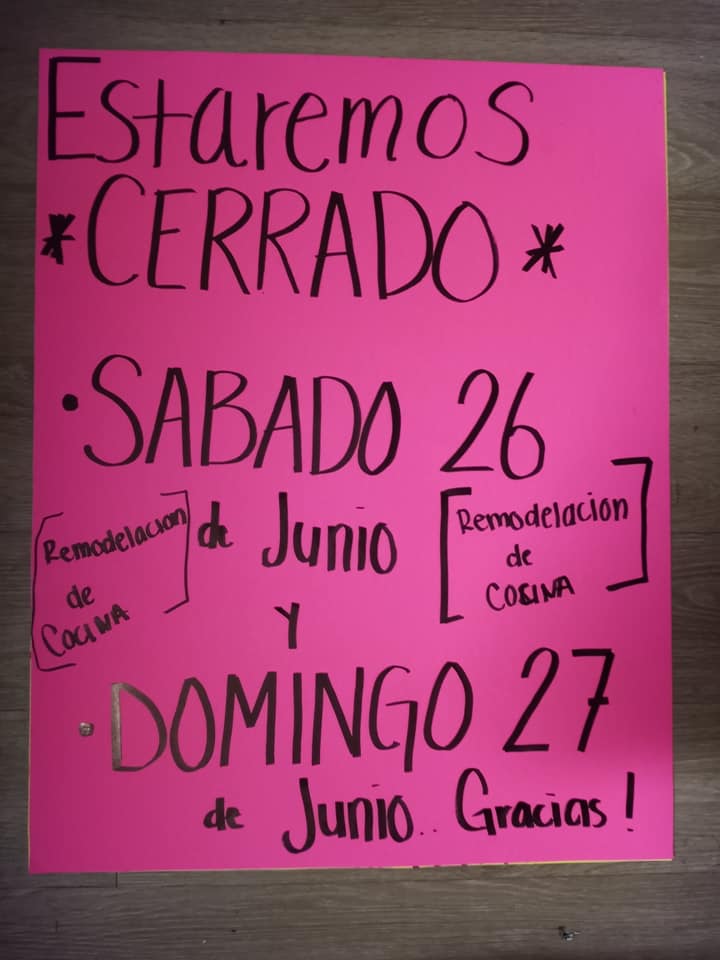 Estaremos
*CERRADO*
•SABADO 26
de Junio
[Remodelacion
de
COCINA]
[Remodelacion
de
COCINA]
y
•DOMINGO 27
de Junio.. Gracias!